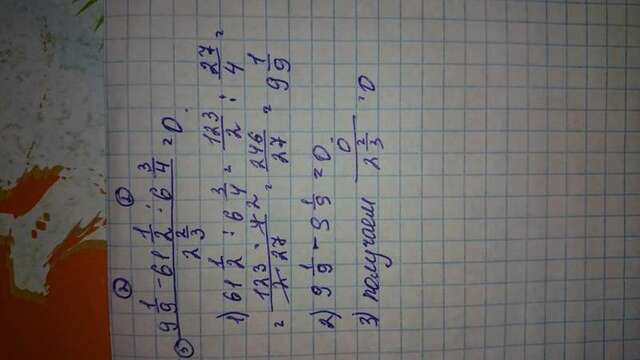 ② ①
③ (9 1/9 - 61 1/2 : 6 3/4) / (2 2/3) = 0.
1) 61 1/2 : 6 3/4 = 123/2 : 27/4 =
= (123 · 4 2)/(2 · 27) = 246/27 = 9 1/9
2) 9 1/9 - 9 1/9 = 0
3) получаем 0/(2 2/3) = 0